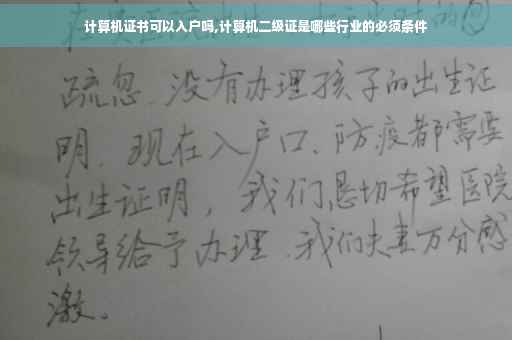 计算机证书可以入户吗,计算机二级证是哪些行业的必须条件
在贵医院
时的
疏忽、没有办理孩子的出生证
明、现在入户口、防疫都需要
出生证明，我们恳切希望医院
领导给予办理、我们夫妻万分感
激。